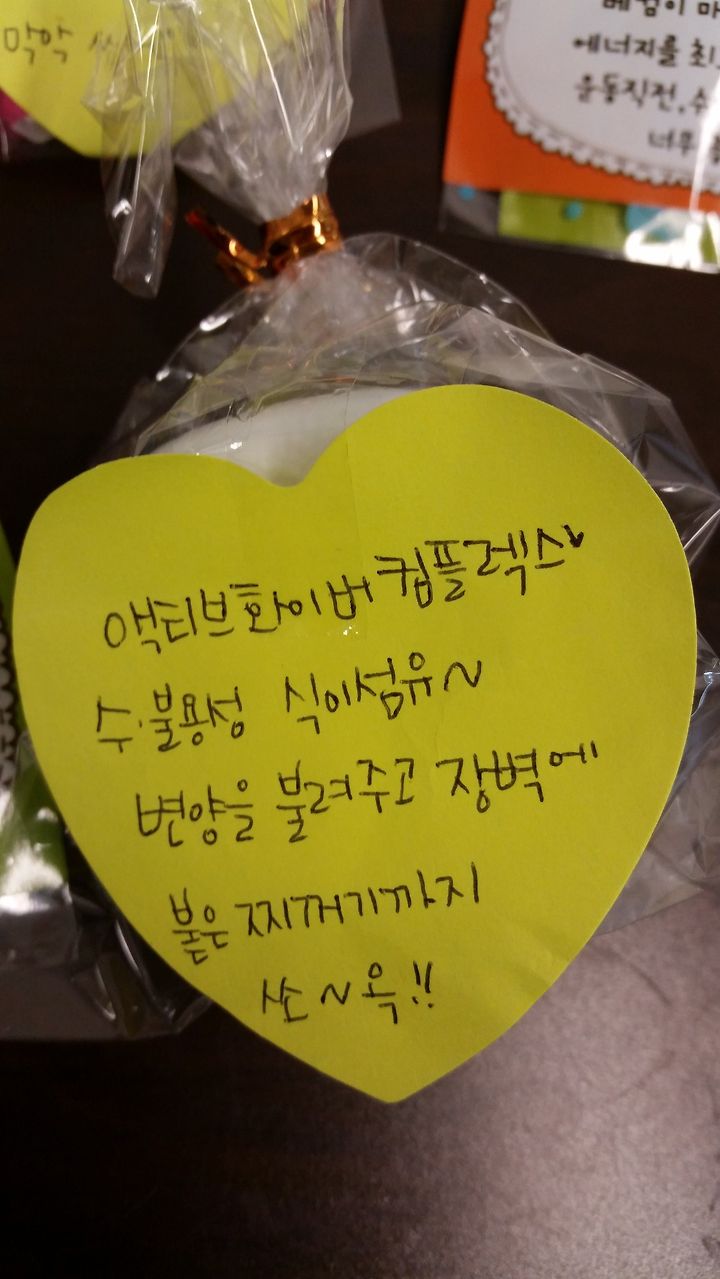 막막
베검이 마
에너지를 최
운동직전, 수
너무
액티브화이버컴플렉스♥
수·불용성 식이섬유~
변양을 불려주고 장벽에
붙은 찌꺼기까지
쏘~옥!!